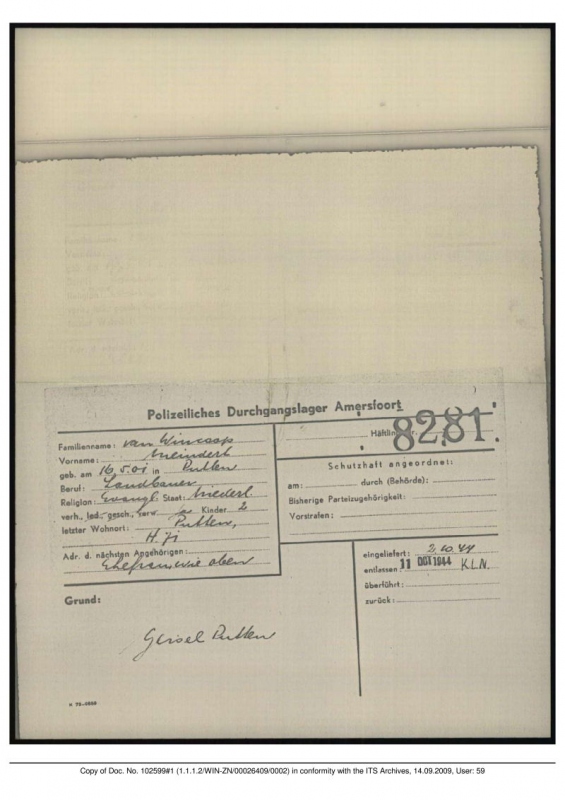 Polizeiliches Durchgangslager Amersfoort
Familienname: van Wincoop
Vorname: Meindert
geb. am 16.5.01 in Putten
Beruf: Landbauer
Religion: Evangl. Staat: Niederl.
verh., led., gesch., verw. ja Kinder 2
letzter Wohnort: Putten,
Adr. d. nächsten Angehörigen:
Ehefrau, wie oben
Häftlingsnr.: 8281.
Schutzhaft angeordnet:
am: durch (Behörde):
Bisherige Parteizugehörigkeit:
Vorstrafen:
eingeliefert: 2.10.44
entlassen: 11 OCT 1944 K.L.N.
überführt:
zurück:
Grund:
Geisel Putten
Copy of Doc. No. 102599#1 (1.1.1.2/WIN-ZN/00026409/0002) in conformity with the ITS Archives, 14.09.2009, User: 59